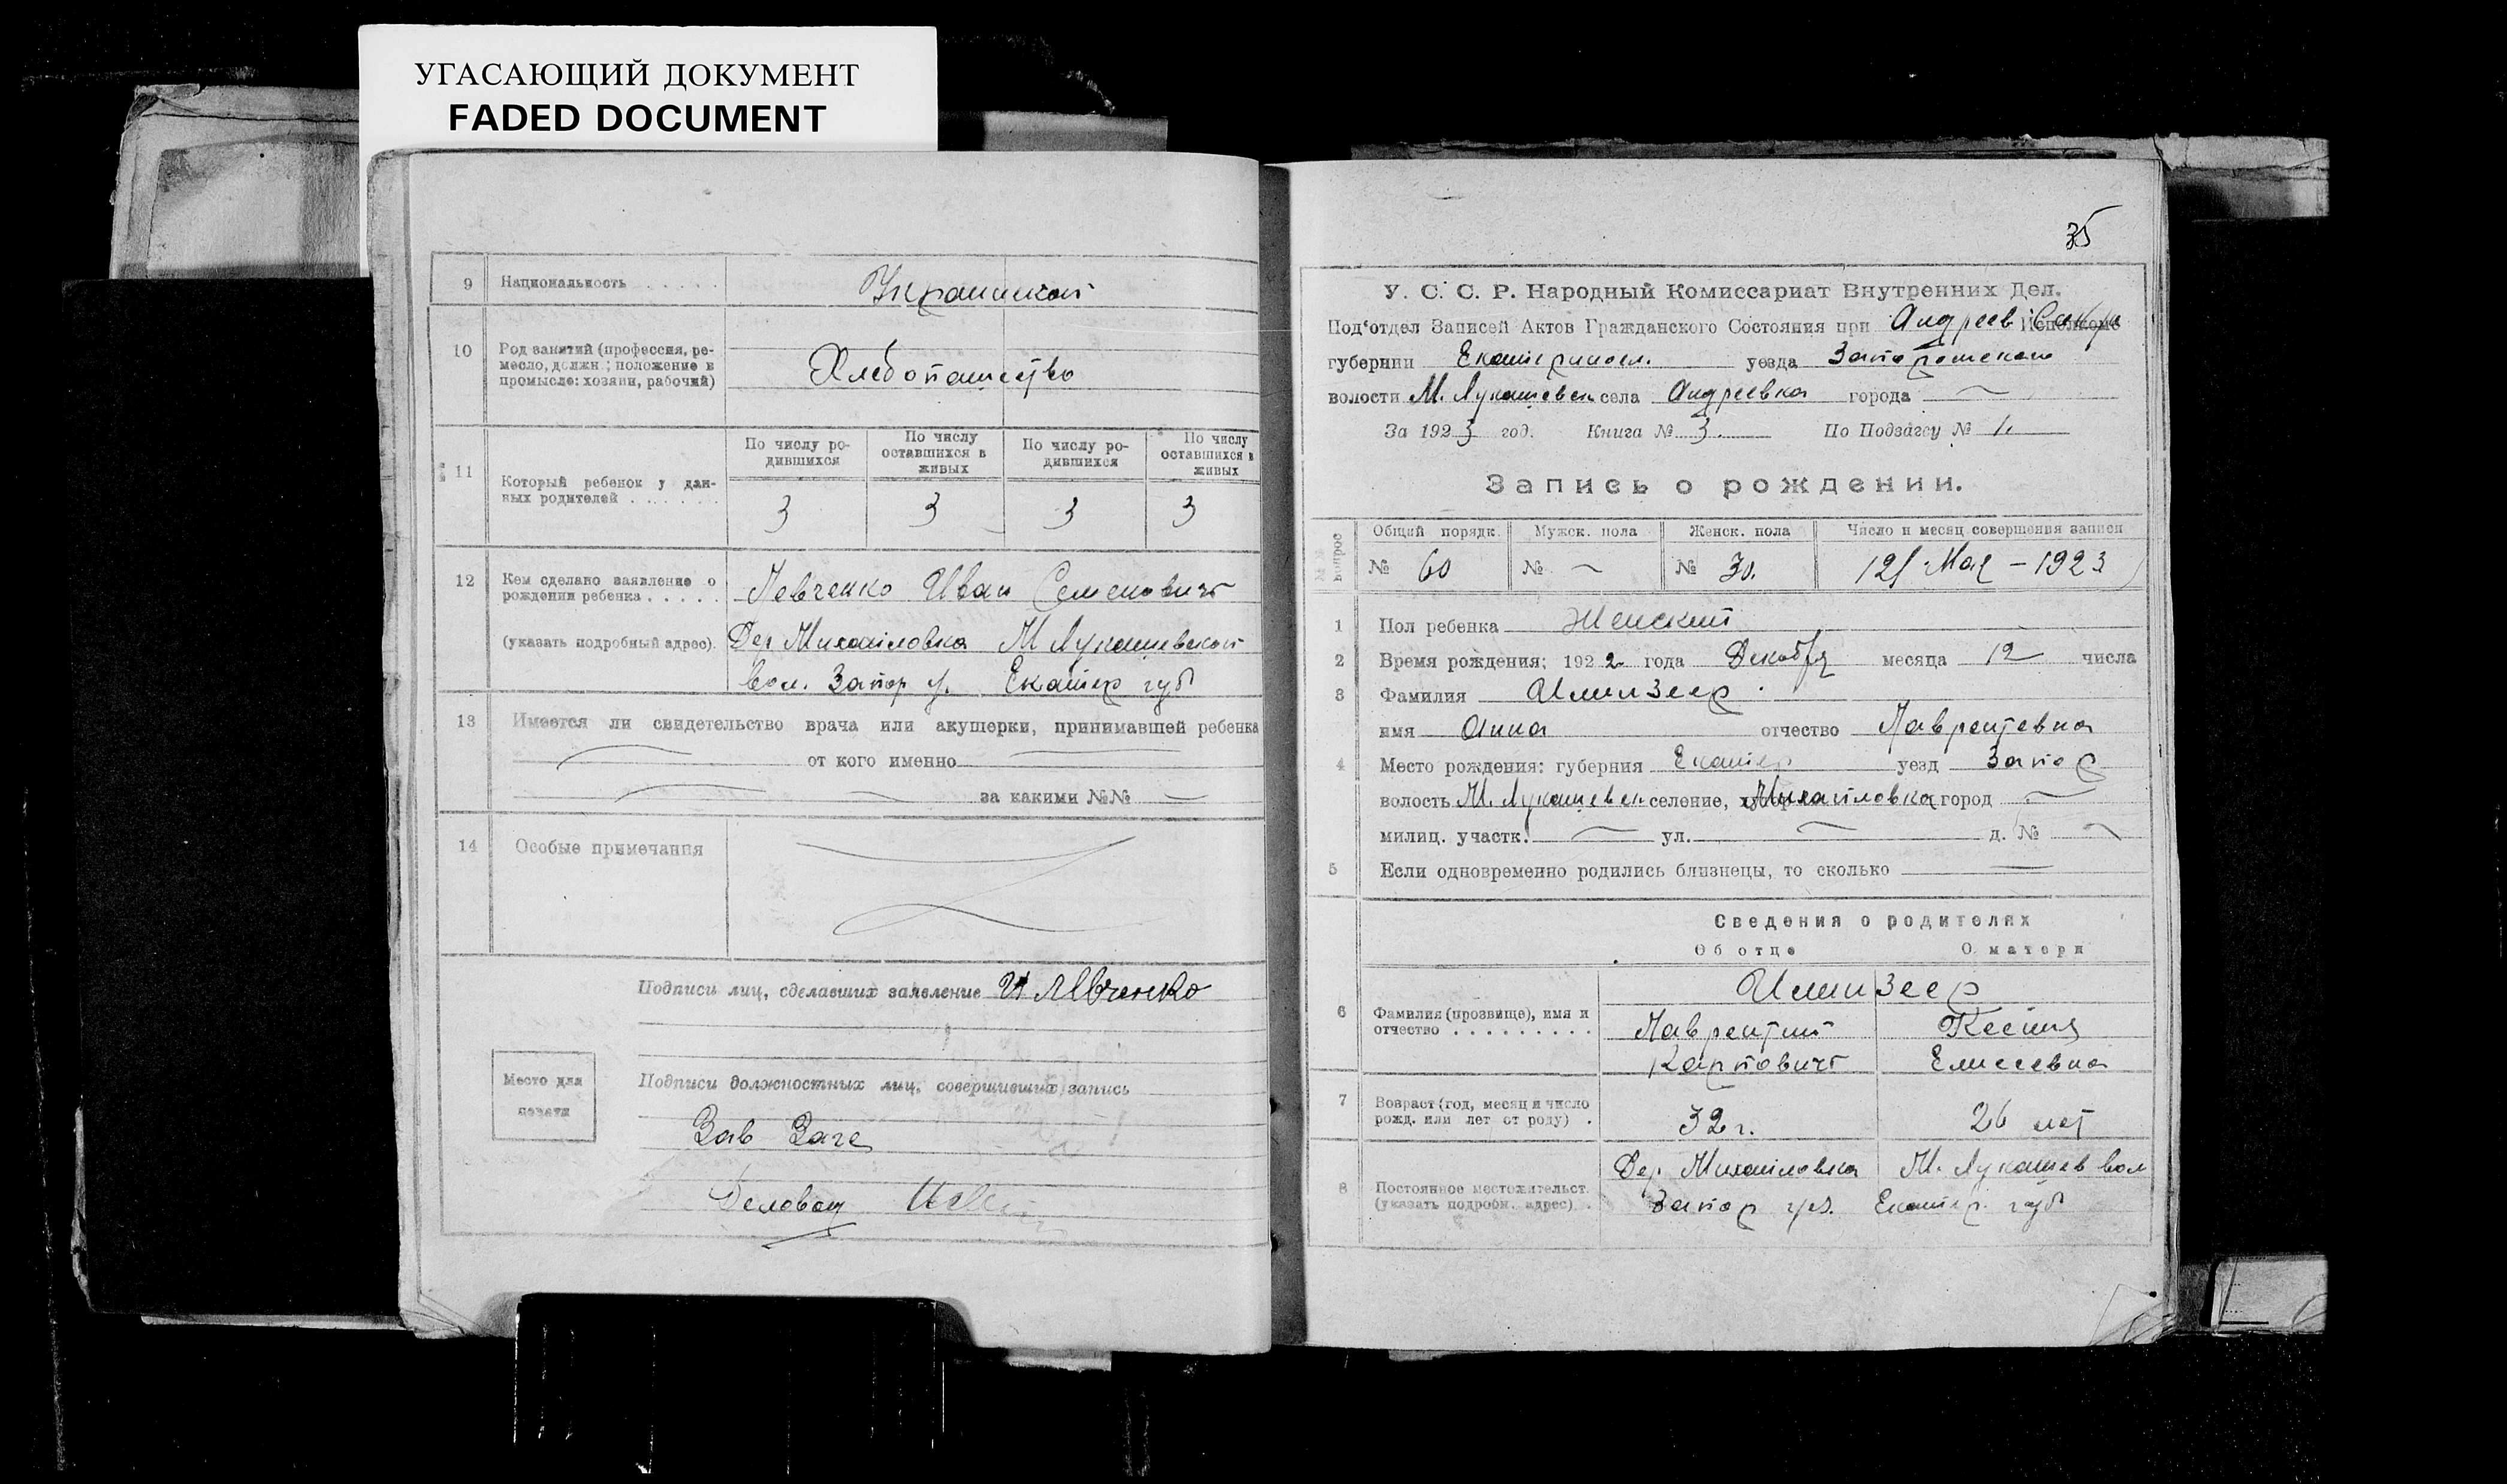 УГАСАЮЩИЙ ДОКУМЕНТ
FADED DOCUMENT
9 Национальность Украинской
10 Род занятий (профессия, ре-
месло, должн.; положение в
промысле: хозяин, рабочий)
Хлебопашество
11 Который ребенок у дан-
ных родителей
По числу ро-
дившихся
По числу
оставшихся в
живых
По числу ро-
дившихся
По число
оставшихся в
живых
3 3 3 3
12 Кем сделано заявление о
рождении ребенка
Левченко Иван Семеновичъ
(указать подробный адрес). Дер Михайловка М Лукашевской
вол. Запор у. Екатер губ
13 Имеется ли свидетельство врача или акушерки, принимавшей ребенка
от кого именно
за какими №№
14 Особые примечания
Подписи лиц, сделавших заявление И Левченко
Место для
печати
Подписи должностных лиц, совершивших запись
Зав Загс
35
У. С. С. Р. Народный Комиссариат Внутренних Дел.
Под‘отдел Записей Актов Гражданского Состояния при Андреев Исполкоме
губернии Екатериносл. уезда Запорожского
волости М. Лукашевск села Андреевка города
За 1923 год. Книга № 3. По Подзагсу № 1.
Запись о рождении.
№№ вопрос
Общий порядк. Мужск. пола Женск. пола Число и месяц совершения записи
№ 60 № № 30. 12/ Мая – 1923
1 Пол ребенка Женский
2 Время рождения: 1922 года Декабря месяца 12 числа
3 Фамилия
имя Анна отчество Лаврентевна
4 Место рождения: губерния Екатер уезд Запор
волость М. Лукашевск селение, Михайловка город
милиц. участк. ул. д. №
5 Если одновременно родились близнецы, то сколько
Сведения о родителях
Об отце О матери
6 Фамилия (прозвище), имя и
отчество
Лаврентий Ксения
Карповичъ Елисеевна
7 Возраст (год, месяц и число
рожд. или лет от роду)
32 г. 26 лет
Дер. Михайловка М. Лукашев вол
8 Постоянное местожительст.
(указать подробн. адрес)
Запор уез. Екатер. губ